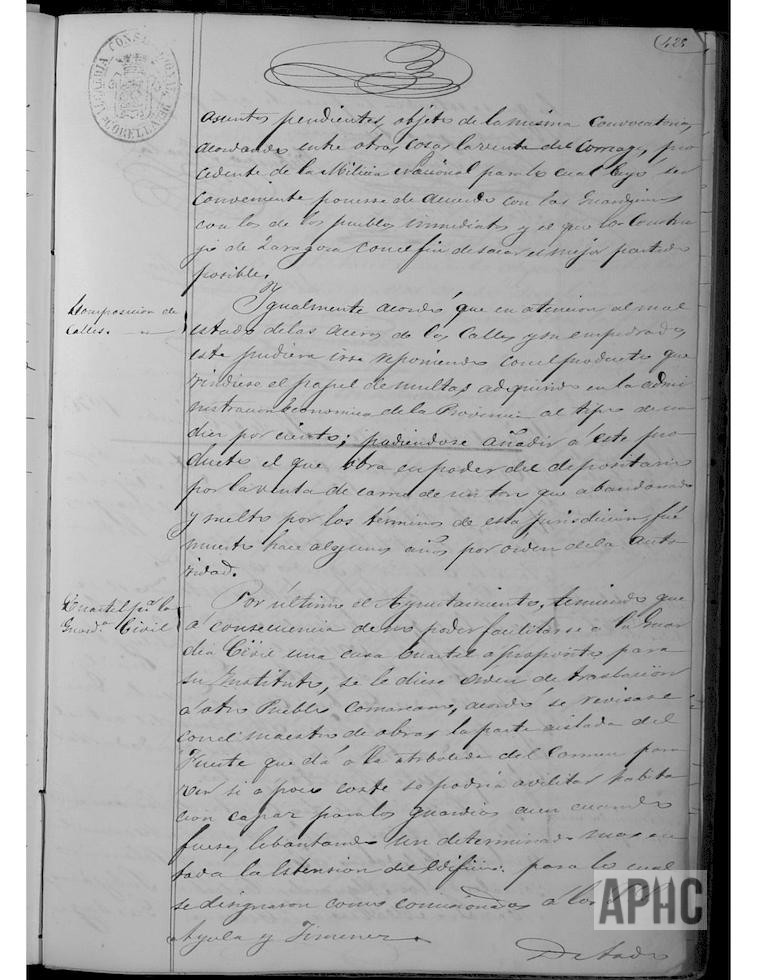 425
ALCALDIA CONSTITUCIONAL DE CORELLA
asuntos pendientes, objeto de la misma convocatoria,
acordando entre otras cosas la venta del correaje, pro
cedente de la Milicia Nacional para lo cual creyó ser
conveniente ponerse de acuerdo con los Guardiones
con los de los pueblos inmediatos y el que los constru
ya de Zaragoza con el fin de sacar el mejor partido
posible.
Composicion de
Calles.
Igualmente acordó que en atencion al mal
estado de las aceras de las Calles y su empedrado,
este pudiera irse reponiendo con el producto que
rindiese el papel de multas adquirido en la admi
nistracion economica de la Provincia al tipo de un
diez por ciento; pudiendose añadir á este pro-
ducto el que obra en poder del depositario
por la venta de carne de un toro que abandonado
y suelto por los términos de esta Jurisdicion, fué
muerto hace algunos años por orden de la auto-
ridad.
Cuartel pª. la
Guardª. Civil
Por último el Ayuntamiento, temiendo que
á consecuencia de no poder facilitarse á la Guar
dia Civil una casa Cuartel a proposito para
su Instituto, se le diese orden de traslacion
a otro Pueblo comarcano, acordó se revisase
con el maestro de obras la parte aislada del
Fuerte que dá á la arboleda del Carmen para
ver si a poco coste se podria avilitar habita
cion capaz para los guardias aun cuando
fuese, lebantando un determinado mas en
toda la Estension del edificio, para lo cual
se designaron como comisionados á los
Ayala y Jimenez.
APHC